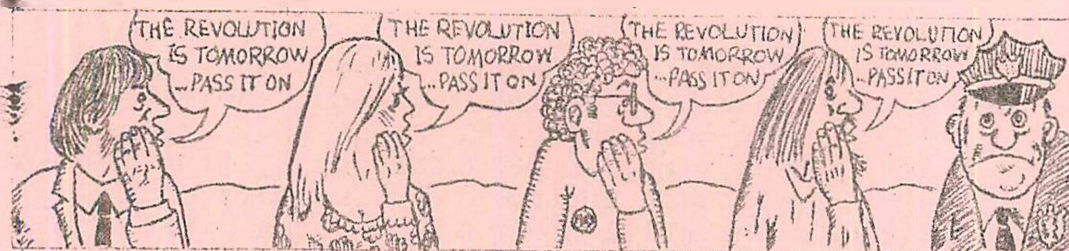 THE REVOLUTION
IS TOMORROW
...PASS IT ON
THE REVOLUTION
IS TOMORROW
...PASS IT ON
THE REVOLUTION
IS TOMORROW
...PASS IT ON
THE REVOLUTION
IS TOMORROW
...PASS IT ON